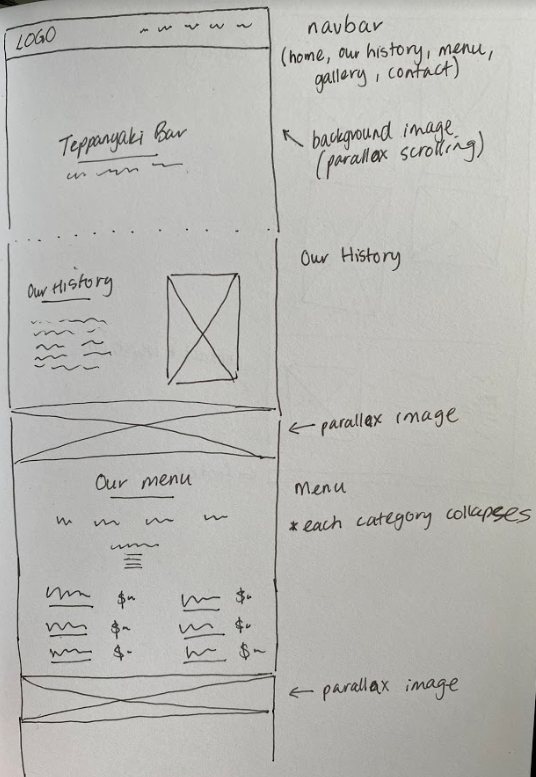 LOGO
navbar
(home, our history, menu,
gallery, contact)
Teppanyaki Bar
background image
(parallax scrolling)
Our History
Our History
parallax image
Our menu
Menu
*each category collapses
$
$
$
$
$
$
parallax image